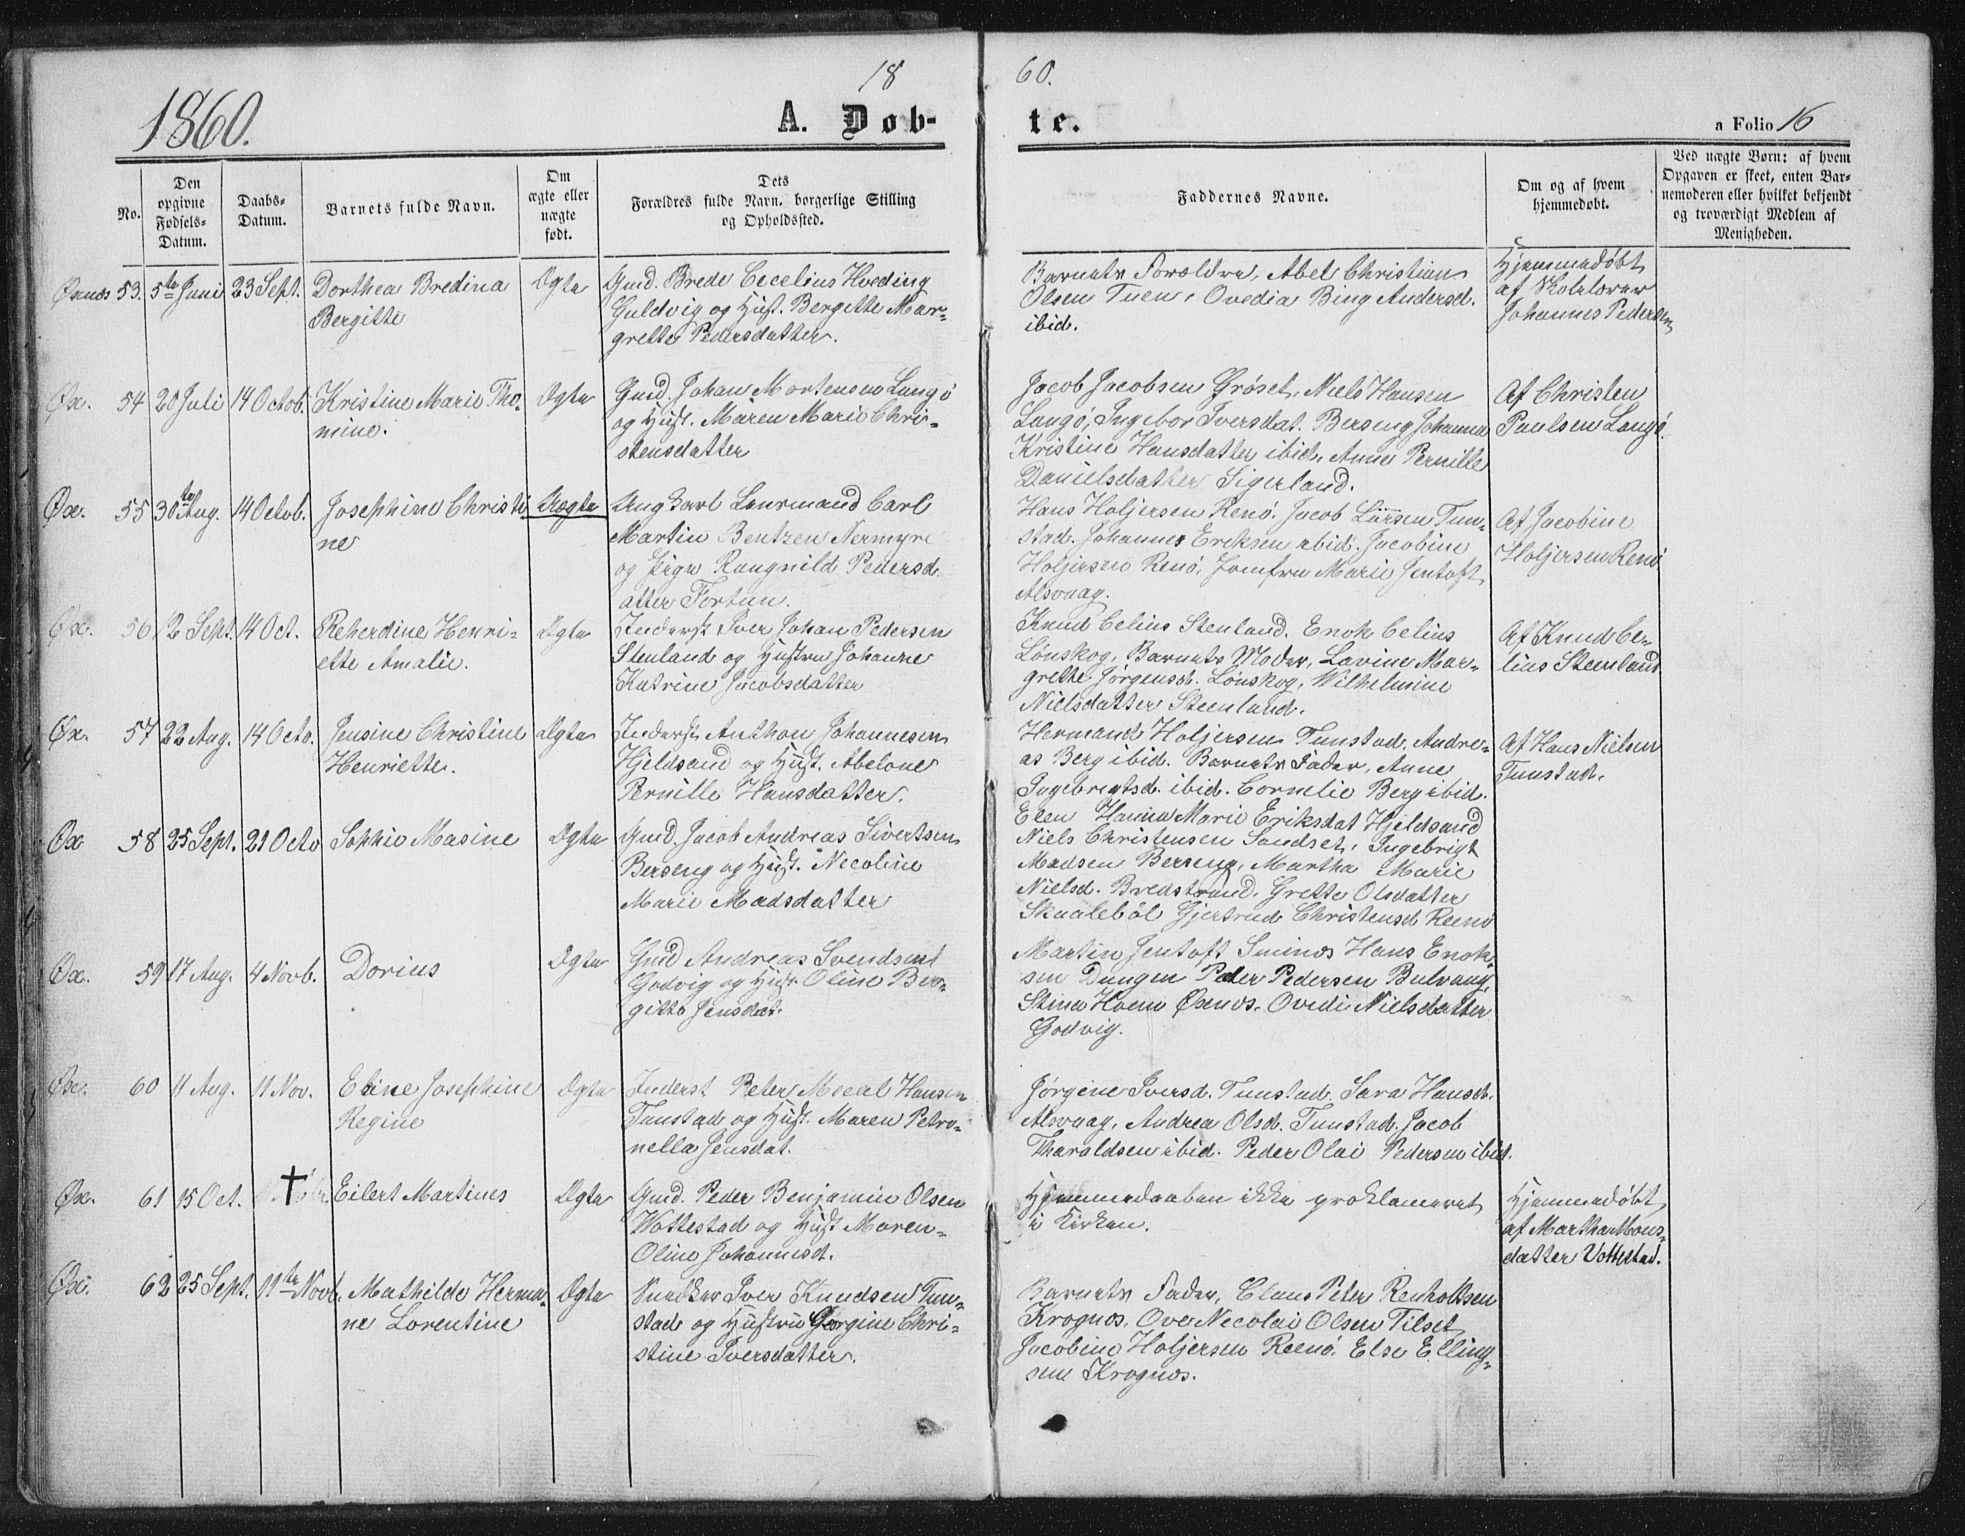 18
60.
1860.
A. Døb-
te.
a Folio 16
No.
Den opgivne Fødsels-Datum.
Daabs-Datum.
Barnets fulde Navn.
Om ægte eller uægte født.
Dets Forældres fulde Navn, borgerlige Stilling og Opholdssted.
Faddernes Navne.
Om og af hvem hjemmedøbt.
Ved uægte Børn: af hvem Opgaven er skeet, enten Barnemoderen eller hvilket bekjendt og troværdigt Medlem af Menigheden.
Øxnæs 53. 5te Juni 23 Sept. Dorthea Bredina Ægte Gmd. Brede Cecelius Hveding
Bergitte
Guldvig og Hust. Bergitte Mar-
grette Pedersdatter.
Barnets Forældre, Abel Christian
Olsen Tuen, Ovedia Bing Andersd.
ibid.
Hjemmedøbt
af Skolelærer
Johannes Pedersen
Øx. 54 20 Juli 14 Octob. Kristine Marie Tho- Ægte Gmd. Johan Mortensen Langø
mine.
og Hust. Maren Marie Chri-
stensdatter
Jacob Jacobsen Grøset, Niels Hansen
Langø, Ingebor Iversdat. Berseng Johanna
Kristine Hansdatter ibid. Anne Pernille
Danielsdatter Sigerland.
Af Christen
Paulsen Langø.
Øx. 55 30te Aug. 14 Octob. Josephine Christi- Uægte Ungkarl Lensmand Carl
ne
Martin Bentzen Nermyre
og Pige Rangnild Pedersd
atter Fortun.
Hans Holjersen Renø. Jacob Lørsen Tun-
stad. Johannes Ereksen ibid. Jacobine
Holjersen Renø, Jomfru Marie Jentoft
Alsvaag.
Af Jacobine
Holjersen Renø
Øx. 56 12 Sept. 14 Oct. Reherdine Henri- Ægte Inderst Iver Johan Pedersen
ette Amalie.
Stenland og Hustru Johanne
Katrine Jacobsdatter
Knud Celius Stenland. Enok Celius
Lønskog, Barnets Moder, Lavine Mar-
grette Jørgensd. Lønskog, Wilhelmine
Nielsdatter Steenland.
Af Knud Ce-
lius Steenland.
Øx. 57 22 Aug. 14 Octo. Jensine Christine Ægte Inderst Anthon Johannesen
Henriette.
Hjeldsand og Hust. Abelone
Pernille Hansdatter.
Hermand Holjersen Tunstad. Andre-
as Berg ibid. Barnets Fader, Anne
Ingebrigtsd. ibid. Cornelie Berg ibid.
Elen Hanna Marie Eriksdat Hjeldsand
Af Hans Nielsen
Tunstad.
Øx 58 25 Sept. 21 Octo Sophie Masine Ægte Gmd. Jacob Andreas Sivertsen
Berseng og Hust. Necoline
Marie Madsdatter
Niels Christensen Sandset, Ingebrigt
Madsen Berseng, Martha Marie
Nielsd. Bredstrand. Grette Olsdatter
Skaalebøl Gjertrud Christensd Reenø
Øx. 59 17 Aug. 4 Novb. Dorius Ægte Gmd Andreas Svendsen
Godvig og Hust Oline Ber-
gitte Jensdat.
Martin Jentoft Sminæs Hans Enok-
sen Dungen Peder Pedersen Bulvaag,
Stina Hoem Øxnæs. Ovedi Nielsdatter
Godvig.
Øx. 60 11 Aug. 11 Nov. Eline Josephine Ægte Inderst Peter Mecal Hansen
Regine
Tunstad og Hust. Maren Petro-
nella Jensdat.
Jørgine Iversd. Tunstad. Sara Hansd.
Alsvaag, Andrea Olsd. Tunstad. Jacob
Tharaldsen ibid. Peder Olai Pedersen ibid.
Øx. 61 15 Oct. Eilert Martines Ægte Gmd. Peder Benjamin Olsen
Wottestad og Hust Maren
Oline Johannesd.
Hjemmedaaben ikke proklameret
i Kirken.
Hjemmedøbt
af Martha Mons-
datter Vottestad.
Øx. 62 25 Sept. 11te Novb. Mathilde Hermi- Ægte Snedker Iver Knudsen Tun-
ne Lorentine
stad og Hustru Georgine Chri-
stine Iversdatter.
Barnets Fader, Claus Peter Renholtsen
Krognæs. Ove Necolai Olsen Tilset,
Jacobine Holjersen Reenø. Else Elling-
sen Krognæs.